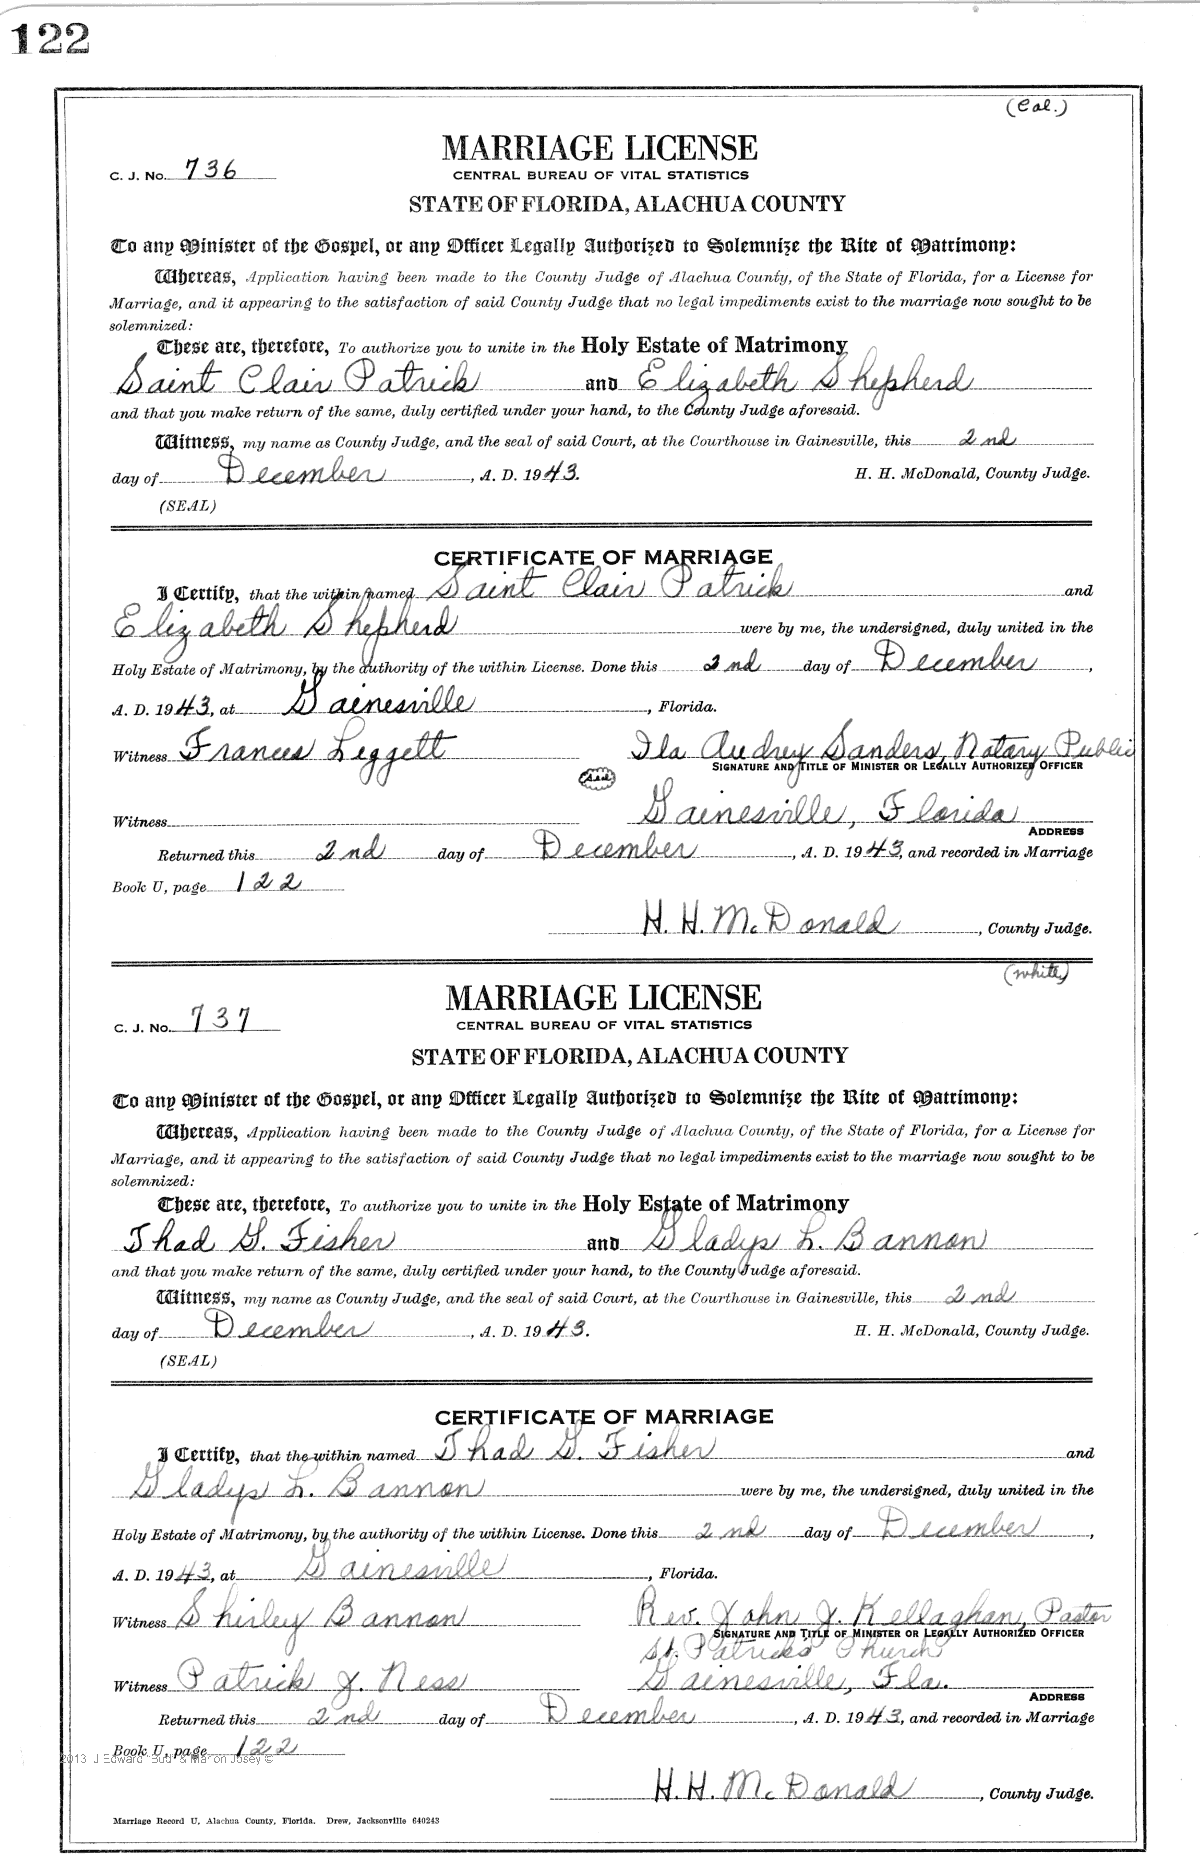 122
(Col.)
MARRIAGE LICENSE
C. J. No. 736
CENTRAL BUREAU OF VITAL STATISTICS
STATE OF FLORIDA, ALACHUA COUNTY
To any Minister of the Gospel, or any Officer Legally Authorized to Solemnize the Rite of Matrimony:
Whereas, Application having been made to the County Judge of Alachua County, of the State of Florida, for a License for
Marriage, and it appearing to the satisfaction of said County Judge that no legal impediments exist to the marriage now sought to be
solemnized:
These are, therefore, To authorize you to unite in the Holy Estate of Matrimony
Saint Clair Patrick and Elizabeth Shepherd
and that you make return of the same, duly certified under your hand, to the County Judge aforesaid.
Witness, my name as County Judge, and the seal of said Court, at the Courthouse in Gainesville, this 2nd
day of December, A. D. 1943. H. H. McDonald, County Judge.
(SEAL)
CERTIFICATE OF MARRIAGE
I Certify, that the within named Saint Clair Patrick and
Elizabeth Shepherd were by me, the undersigned, duly united in the
Holy Estate of Matrimony, by the authority of the within License. Done this 2nd day of December,
A. D. 1943, at Gainesville, Florida.
Witness Frances Leggett Ila Audrey Sanders, Notary Public
SIGNATURE AND TITLE OF MINISTER OR LEGALLY AUTHORIZED OFFICER
Seal
Witness Gainesville, Florida
ADDRESS
Returned this 2nd day of December, A. D. 1943, and recorded in Marriage
Book U, page 122
H. H. McDonald, County Judge.
(white)
MARRIAGE LICENSE
C. J. No. 737
CENTRAL BUREAU OF VITAL STATISTICS
STATE OF FLORIDA, ALACHUA COUNTY
To any Minister of the Gospel, or any Officer Legally Authorized to Solemnize the Rite of Matrimony:
Whereas, Application having been made to the County Judge of Alachua County, of the State of Florida, for a License for
Marriage, and it appearing to the satisfaction of said County Judge that no legal impediments exist to the marriage now sought to be
solemnized:
These are, therefore, To authorize you to unite in the Holy Estate of Matrimony
Thad G. Fisher and Gladys L. Bannon
and that you make return of the same, duly certified under your hand, to the County Judge aforesaid.
Witness, my name as County Judge, and the seal of said Court, at the Courthouse in Gainesville, this 2nd
day of December, A. D. 1943. H. H. McDonald, County Judge.
(SEAL)
CERTIFICATE OF MARRIAGE
I Certify, that the within named Thad G. Fisher and
Gladys L. Bannon were by me, the undersigned, duly united in the
Holy Estate of Matrimony, by the authority of the within License. Done this 2nd day of December,
A. D. 1943, at Gainesville, Florida.
Witness Shirley Bannon Rev. John J. Kellaghan, Pastor
SIGNATURE AND TITLE OF MINISTER OR LEGALLY AUTHORIZED OFFICER
St. Patrick's Church
Witness Patrick J. Ness Gainesville, Fla.
ADDRESS
Returned this 2nd day of December, A. D. 1943, and recorded in Marriage
Book U, page 122
2013 J Edward "Bud" & Marion Josey ©
H. H. McDonald, County Judge.
Marriage Record U, Alachua County, Florida. Drew, Jacksonville 640243